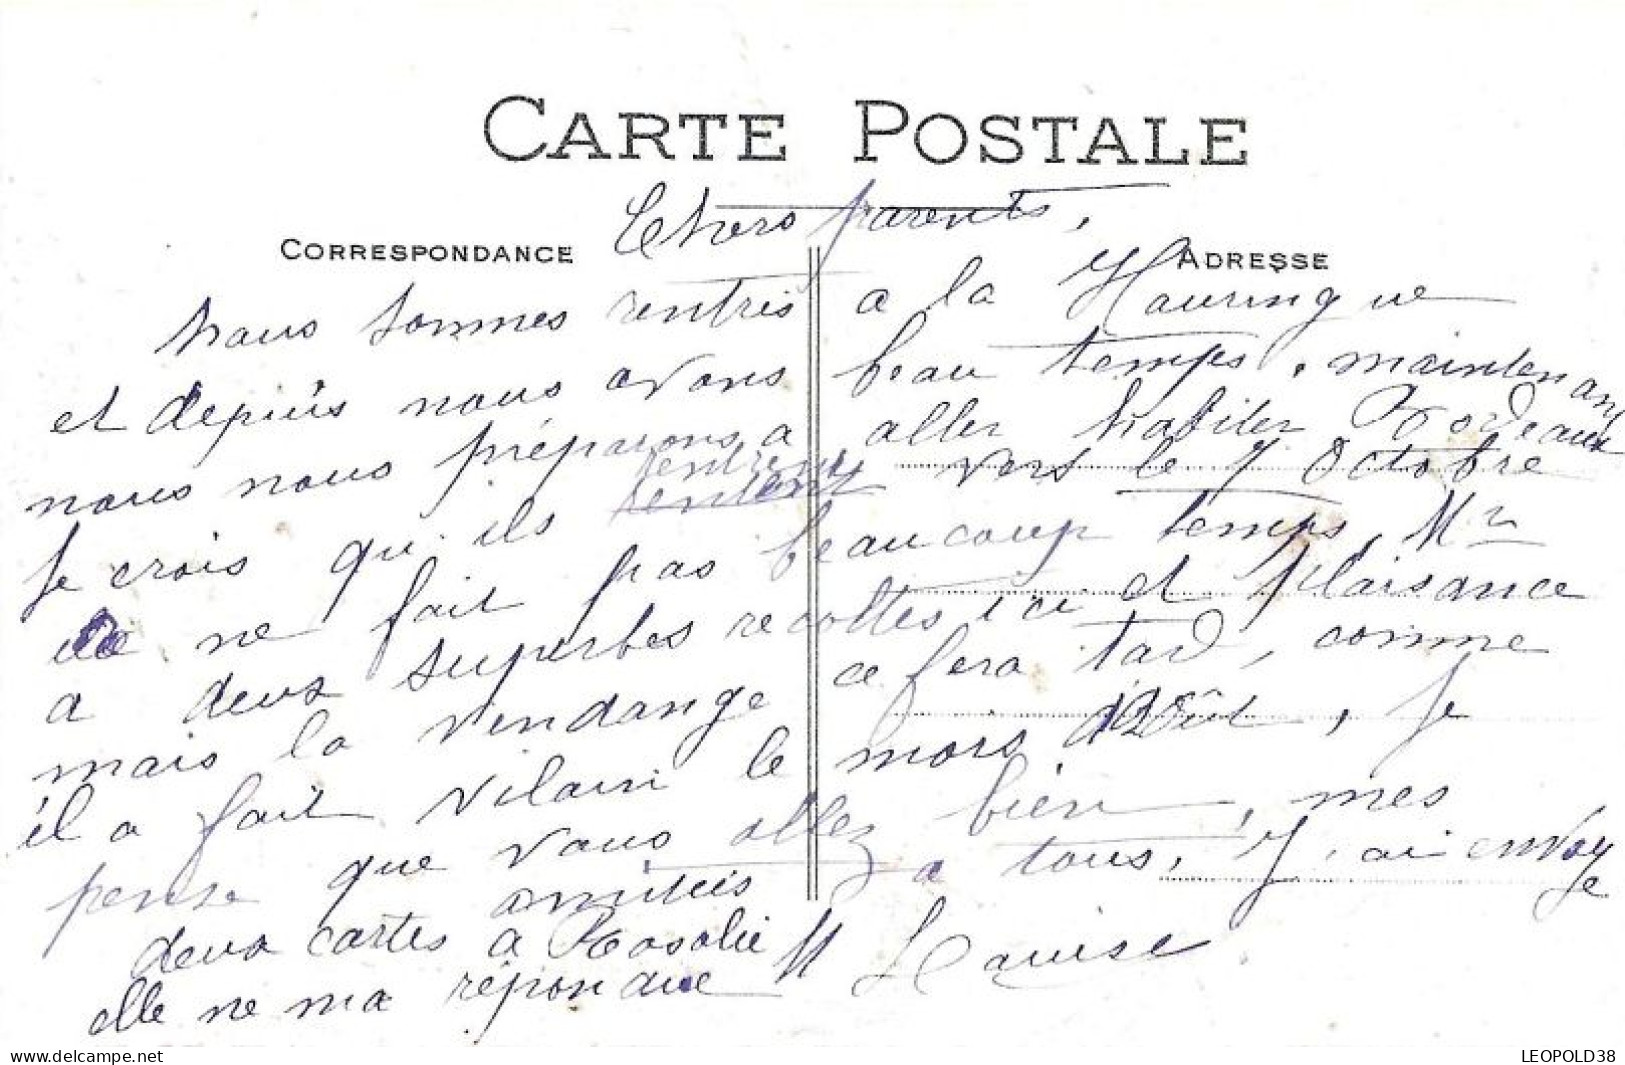 CARTE POSTALE
Chers parents,
CORRESPONDANCE
ADRESSE
Nous sommes rentrés a la Hauringue
et depuis nous avons beau temps, maintenant
nous nous préparons a aller habiter Bordeaux
Je crois qu'ils rentrerons vers le 7 Octobre
ici ne fait pas beaucoup temps, Mr
a deux superbes recoltes ici et plaisance
mais la vendange ce fera tard, comme
il a fait vilain le mois d'Août, Je
pense que vous allez bien, mes
amitiés a tous, J'ai envoye
deux cartes a Rosalie
elle ne ma repondue
M Louise
LEOPOLD38